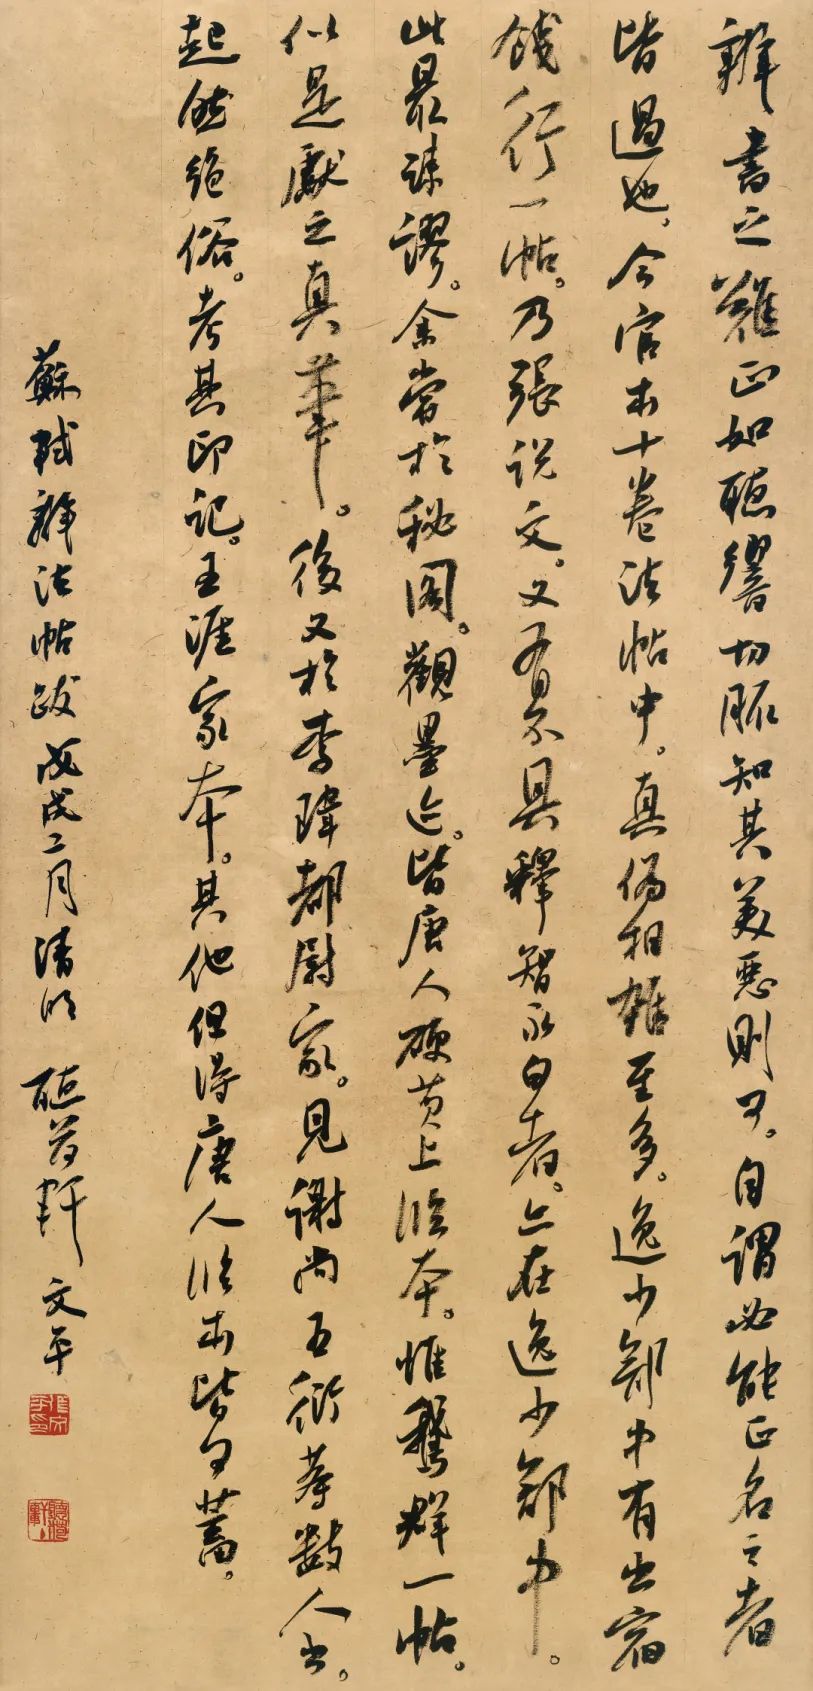 辨書之難正如聽響切脈知其美惡則可。自謂必能正名之者
皆過也。今官本十卷法帖中。真偽相雜至多。逸少部中有出宿
餞行一帖。乃張说文。又有不具釋智永白者。亦在逸少部中。
此最疎謬。余嘗於秘閣。觀墨迹。皆唐人硬黄上临本。惟鵞群一帖。
似是獻之真筆。後又於李瑋都尉家。見謝尚王衍等數人书。
超然绝俗。考其印记。王涯家本。其他但得唐人临本皆可蓄。
蘇軾辨法帖跋戊戌二月清明 聽荷軒 文平